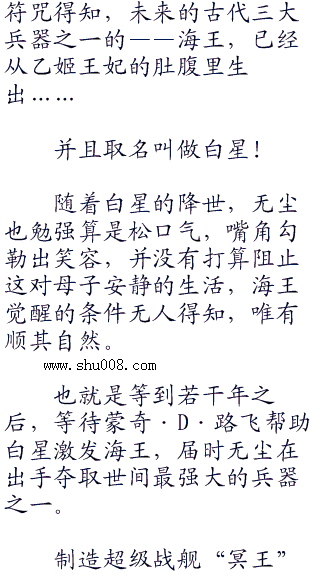 符咒得知，未来的古代三大
兵器之一的——海王，已经
从乙姬王妃的肚腹里生
出……
并且取名叫做白星！
随着白星的降世，无尘
也勉强算是松口气，嘴角勾
勒出笑容，并没有打算阻止
这对母子安静的生活，海王
觉醒的条件无人得知，唯有
顺其自然。
www.shu008.com
也就是等到若干年之
后，等待蒙奇·D·路飞帮助
白星激发海王，届时无尘在
出手夺取世间最强大的兵器
之一。
制造超级战舰“冥王”